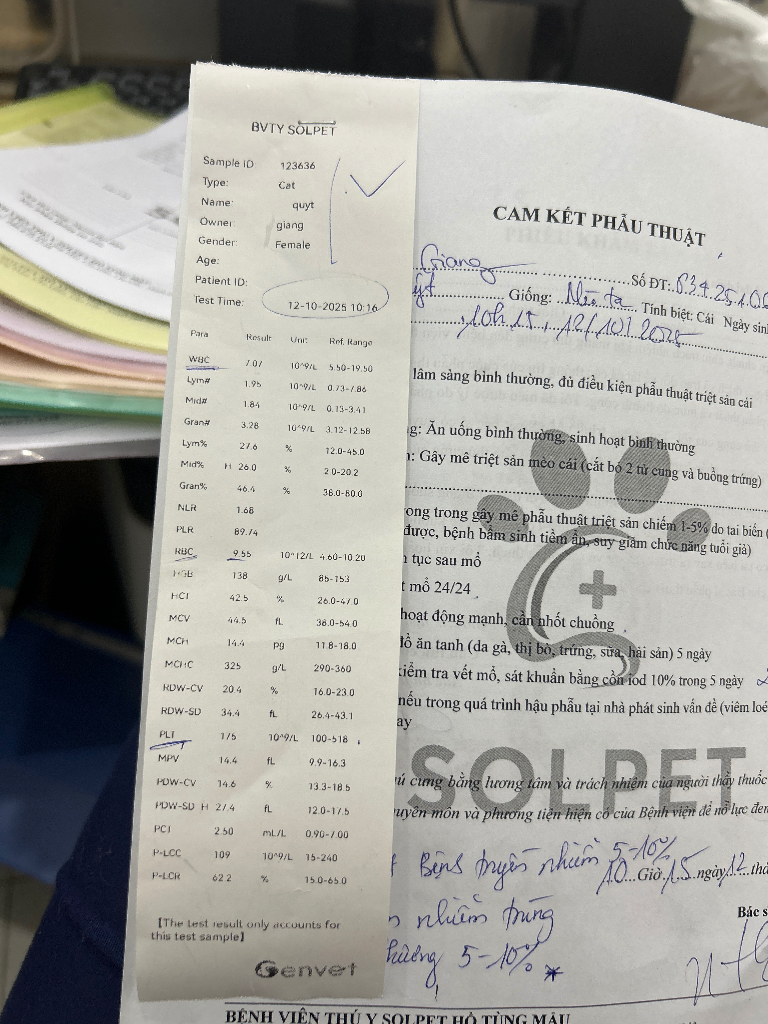 BVTY SOLPET
Sample ID 123636
Type: Cat
Name: quyt
Owner giang
Gender: Female
Age:
Patient ID:
Test Time: 12-10-2025 10:16
Para Result Unit Ref. Range
WBC 7.07 10^9/L 5.50-19.50
Lym# 1.95 10^9/L 0.73-7.86
Mid# 1.84 10^9/L 0.13-3.41
Gran# 3.28 10^9/L 3.12-12.58
Lym% 27.6 % 12.0-45.0
Mid% H 26.0 % 2.0-20.2
Gran% 46.4 % 38.0-80.0
NLR 1.68
PLR 89.74
RBC 9.55 10^12/L 4.60-10.20
HGB 138 g/L 85-153
HCT 42.5 % 26.0-47.0
MCV 44.5 fL 38.0-54.0
MCH 14.4 pg 11.8-18.0
MCHC 325 g/L 290-360
RDW-CV 20.4 % 16.0-23.0
RDW-SD 34.4 fL 26.4-43.1
PLT 175 10^9/L 100-518
MPV 14.4 fL 9.9-16.3
PDW-CV 14.6 % 13.3-18.5
PDW-SD H 27.4 fL 12.0-17.5
PCT 2.50 mL/L 0.90-7.00
P-LCC 109 10^9/L 15-240
P-LCR 62.2 % 15.0-65.0
[The test result only accounts for
this test sample]
Genvet
CAM KẾT PHẪU THUẬT
Giang Số ĐT:
Giống: Mèo ta Tính biệt: Cái Ngày sinh
10h15, 12/10/2025
lâm sàng bình thường, đủ điều kiện phẫu thuật triệt sản cái
Ăn uống bình thường, sinh hoạt bình thường
Gây mê triệt sản mèo cái (cắt bỏ 2 tử cung và buồng trứng)
ong trong gây mê phẫu thuật triệt sản chiếm 1-5% do tai biến
được, bệnh bẩm sinh tiềm ẩn, suy giảm chức năng tuổi già)
tục sau mổ
mổ 24/24
hoạt động mạnh, cần nhốt chuồng
đồ ăn tanh (da gà, thị bò, trứng, sữa, hải sản) 5 ngày
kiểm tra vết mổ, sát khuẩn bằng cồn iod 10% trong 5 ngày
nếu trong quá trình hậu phẫu tại nhà phát sinh vấn đề (viêm loé
ay
SOLPET
ú cưng bằng lương tâm và trách nhiệm của người thầy thuốc
uyên môn và phương tiện hiện có của Bệnh viện để nỗ lực đem
Bệnh truyền nhiễm 5-10%
10 Giờ 15 ngày 12 thá
nhiễm trùng
Bác s
5-10% *
BỆNH VIỆN THÚ Y SOLPET HỒ TÙNG MẬU